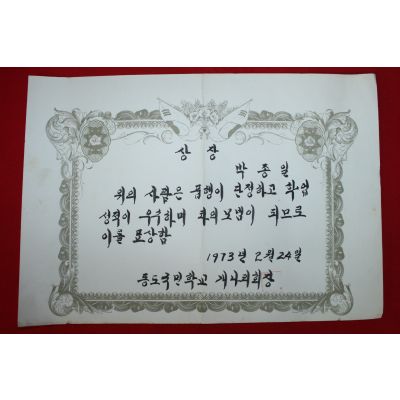 상 장
박 종 일
위의 사람은 품행이 단정하고 학업
성적이 우수하며 타의 모범이 되므로
이를 표상함
1973년 2월 24일
동도국민학교